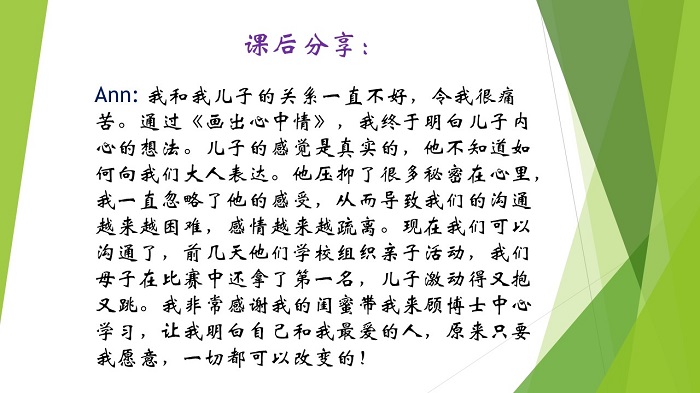 课后分享：
Ann: 我和我儿子的关系一直不好，令我很痛
苦。通过《画出心中情》，我终于明白儿子内
心的想法。儿子的感觉是真实的，他不知道如
何向我们大人表达。他压抑了很多秘密在心里，
我一直忽略了他的感受，从而导致我们的沟通
越来越困难，感情越来越疏离。现在我们可以
沟通了，前几天他们学校组织亲子活动，我们
母子在比赛中还拿了第一名，儿子激动得又抱
又跳。我非常感谢我的闺蜜带我来顾博士中心
学习，让我明白自己和我最爱的人，原来只要
我愿意，一切都可以改变的！